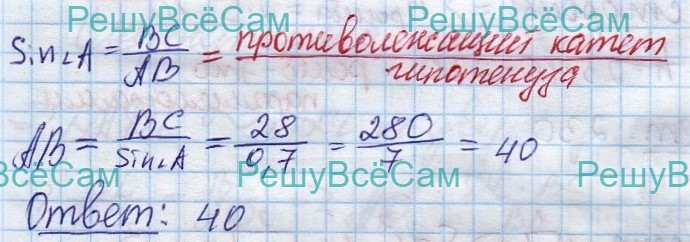 РешуВсёСам РешуВсёСам
Sin∠A = BC/AB = противолежащий катет/гипотенуза
AB = BC/Sin∠A = 28/0,7 = 280/7 = 40
РешуВсёСам РешуВсёСам РешуВсёСам
Ответ: 40